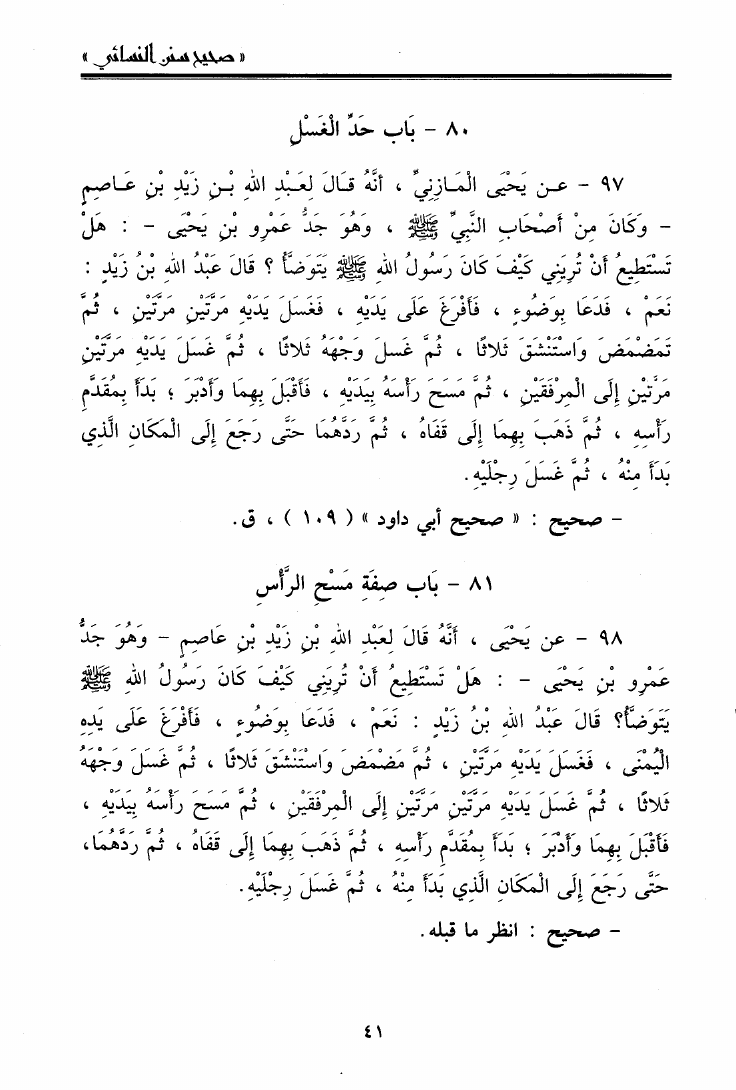 « صحيح سنن النسائي »
٨٠ - بَاب حَدِّ الْغَسْلِ
٩٧ - عـن يَحْيَى الْمَـازِنِيِّ ، أَنَّهُ قَـالَ لِعَبْـدِ اللهِ بْـنِ زَيْدِ بْنِ عَـاصِمٍ
- وَكَانَ مِنْ أَصْحَابِ النَّبِيِّ ﷺ ، وَهُوَ جَدُّ عَمْرِو بْنِ يَحْيَى - : هَلْ
تَسْتَطِيعُ أَنْ تُرِيَنِي كَيْفَ كَانَ رَسُولُ اللهِ ﷺ يَتَوَضَّأُ ؟ قَالَ عَبْدُ اللهِ بْنُ زَيْدٍ :
نَعَمْ ، فَدَعَا بِوَضُوءٍ ، فَأَفْرَغَ عَلَى يَدَيْهِ ، فَغَسَلَ يَدَيْهِ مَرَّتَيْنِ مَرَّتَيْنِ ، ثُمَّ
تَمَضْمَضَ وَاسْتَنْشَقَ ثَلاثًا ، ثُمَّ غَسَلَ وَجْهَهُ ثَلاثًا ، ثُمَّ غَسَلَ يَدَيْهِ مَرَّتَيْنِ
مَرَّتَيْنِ إِلَى الْمِرْفَقَيْنِ ، ثُمَّ مَسَحَ رَأْسَهُ بِيَدَيْهِ ، فَأَقْبَلَ بِهِمَا وَأَدْبَرَ ؛ بَدَأَ بِمُقَدَّمِ
رَأْسِهِ ، ثُمَّ ذَهَبَ بِهِمَا إِلَى قَفَاهُ ، ثُمَّ رَدَّهُمَا حَتَّى رَجَعَ إِلَى الْمَكَانِ الَّذِي
بَدَأَ مِنْهُ ، ثُمَّ غَسَلَ رِجْلَيْهِ.
- صحيح : « صحيح أبي داود » ( ١٠٩ ) ، ق.
٨١ - بَاب صِفَةِ مَسْحِ الرَّأْسِ
٩٨ - عن يَحْيَى ، أَنَّهُ قَالَ لِعَبْدِ اللهِ بْنِ زَيْدِ بْنِ عَاصِمٍ - وَهُوَ جَدُّ
عَمْرِو بْنِ يَحْيَى - : هَلْ تَسْتَطِيعُ أَنْ تُرِيَنِي كَيْفَ كَانَ رَسُولُ اللهِ ﷺ
يَتَوَضَّأُ؟ قَالَ عَبْدُ اللهِ بْنُ زَيْدٍ : نَعَمْ ، فَدَعَا بِوَضُوءٍ ، فَأَفْرَغَ عَلَى يَدِهِ
الْيُمْنَى ، فَغَسَلَ يَدَيْهِ مَرَّتَيْنِ ، ثُمَّ مَضْمَضَ وَاسْتَنْشَقَ ثَلاثًا ، ثُمَّ غَسَلَ وَجْهَهُ
ثَلاثًا ، ثُمَّ غَسَلَ يَدَيْهِ مَرَّتَيْنِ مَرَّتَيْنِ إِلَى الْمِرْفَقَيْنِ ، ثُمَّ مَسَحَ رَأْسَهُ بِيَدَيْهِ ،
فَأَقْبَلَ بِهِمَا وَأَدْبَرَ ؛ بَدَأَ بِمُقَدَّمِ رَأْسِهِ ، ثُمَّ ذَهَبَ بِهِمَا إِلَى قَفَاهُ ، ثُمَّ رَدَّهُمَا،
حَتَّى رَجَعَ إِلَى الْمَكَانِ الَّذِي بَدَأَ مِنْهُ ، ثُمَّ غَسَلَ رِجْلَيْهِ.
- صحيح : انظر ما قبله.
٤١